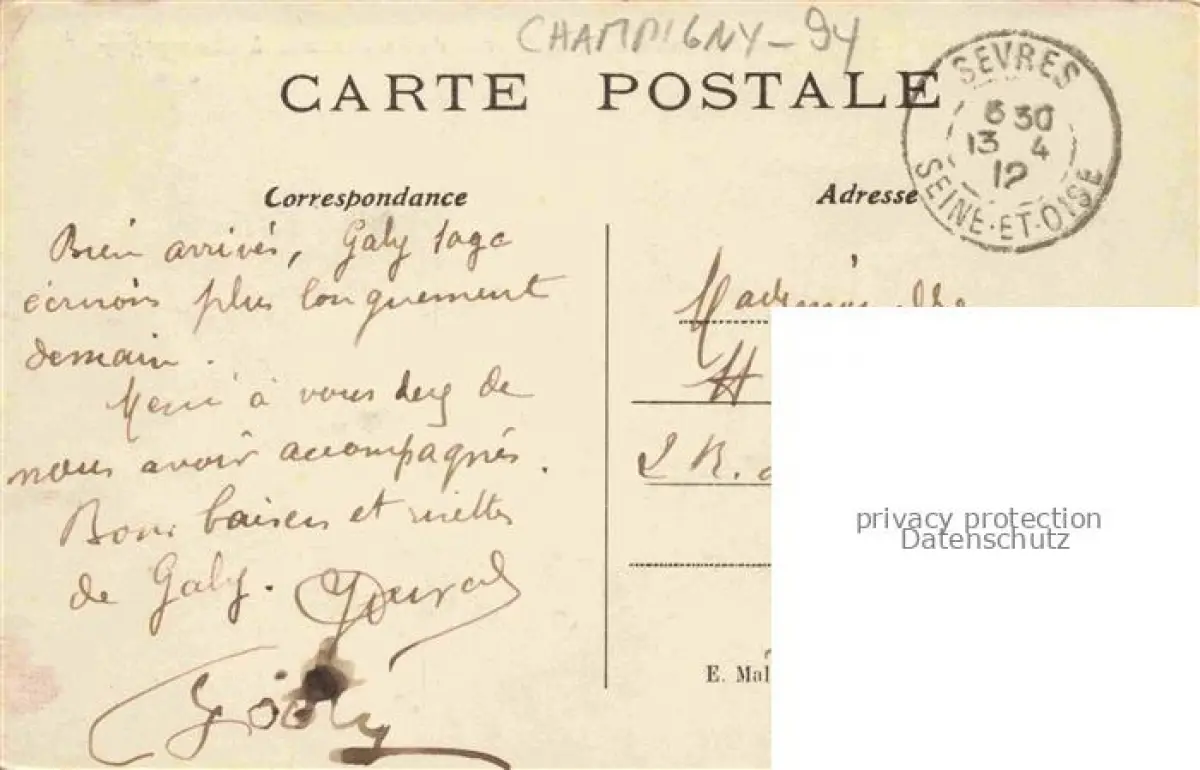 CHAMPIGNY-94
CARTE POSTALE
SEVRES
30
13 4
12
SEINE-ET-OISE
Correspondance
Adresse
Bien arrivés, Galy
plus longuement
demain.
Merci à vous deux de
nous avoir accompagnés.
Bons baisers et
de Galy.
Galy
Mademoiselle
H
2 R.
E. Mal
privacy protection
Datenschutz